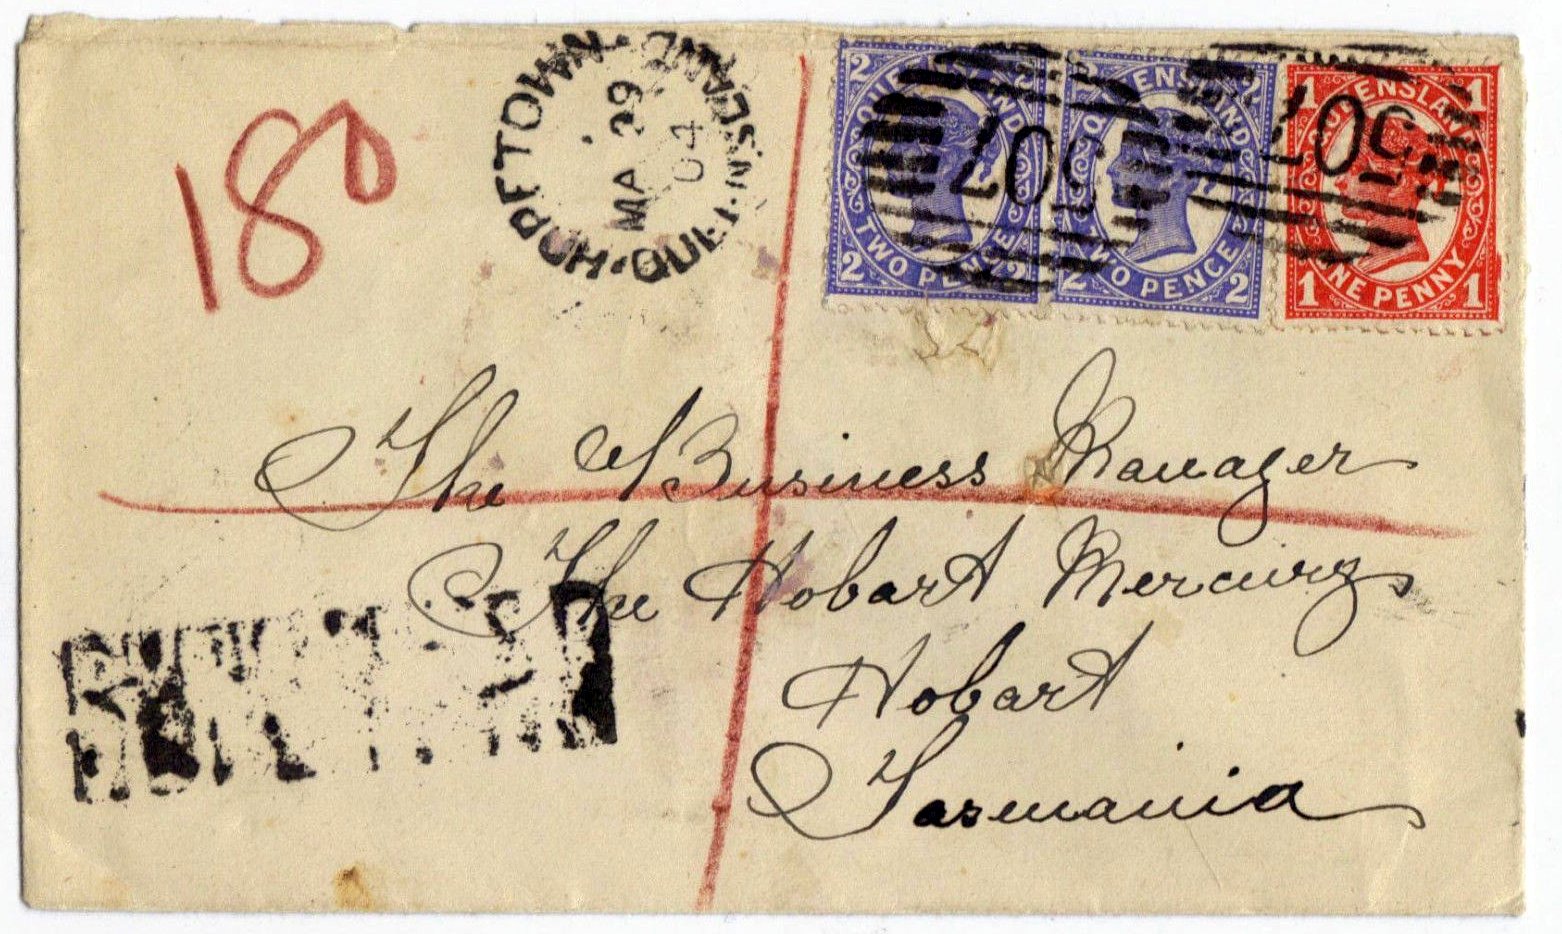 180
HOPETOWN · QUEENSLAND
MA 29
04
2 2
QUEENSLAND
TWO PENCE
2 2
2 2
QUEENSLAND
TWO PENCE
2 2
1 1
QUEENSLAND
ONE PENNY
1 1
507
507
The Business Manager
The Hobart Mercury
Hobart
Tasmania